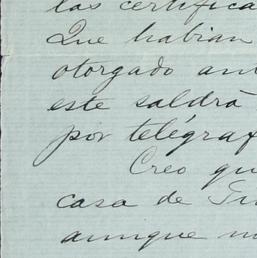 las certifica
Que habian
otorgado an
este saldrá
por telégraf
Creo qu
casa de
aunque